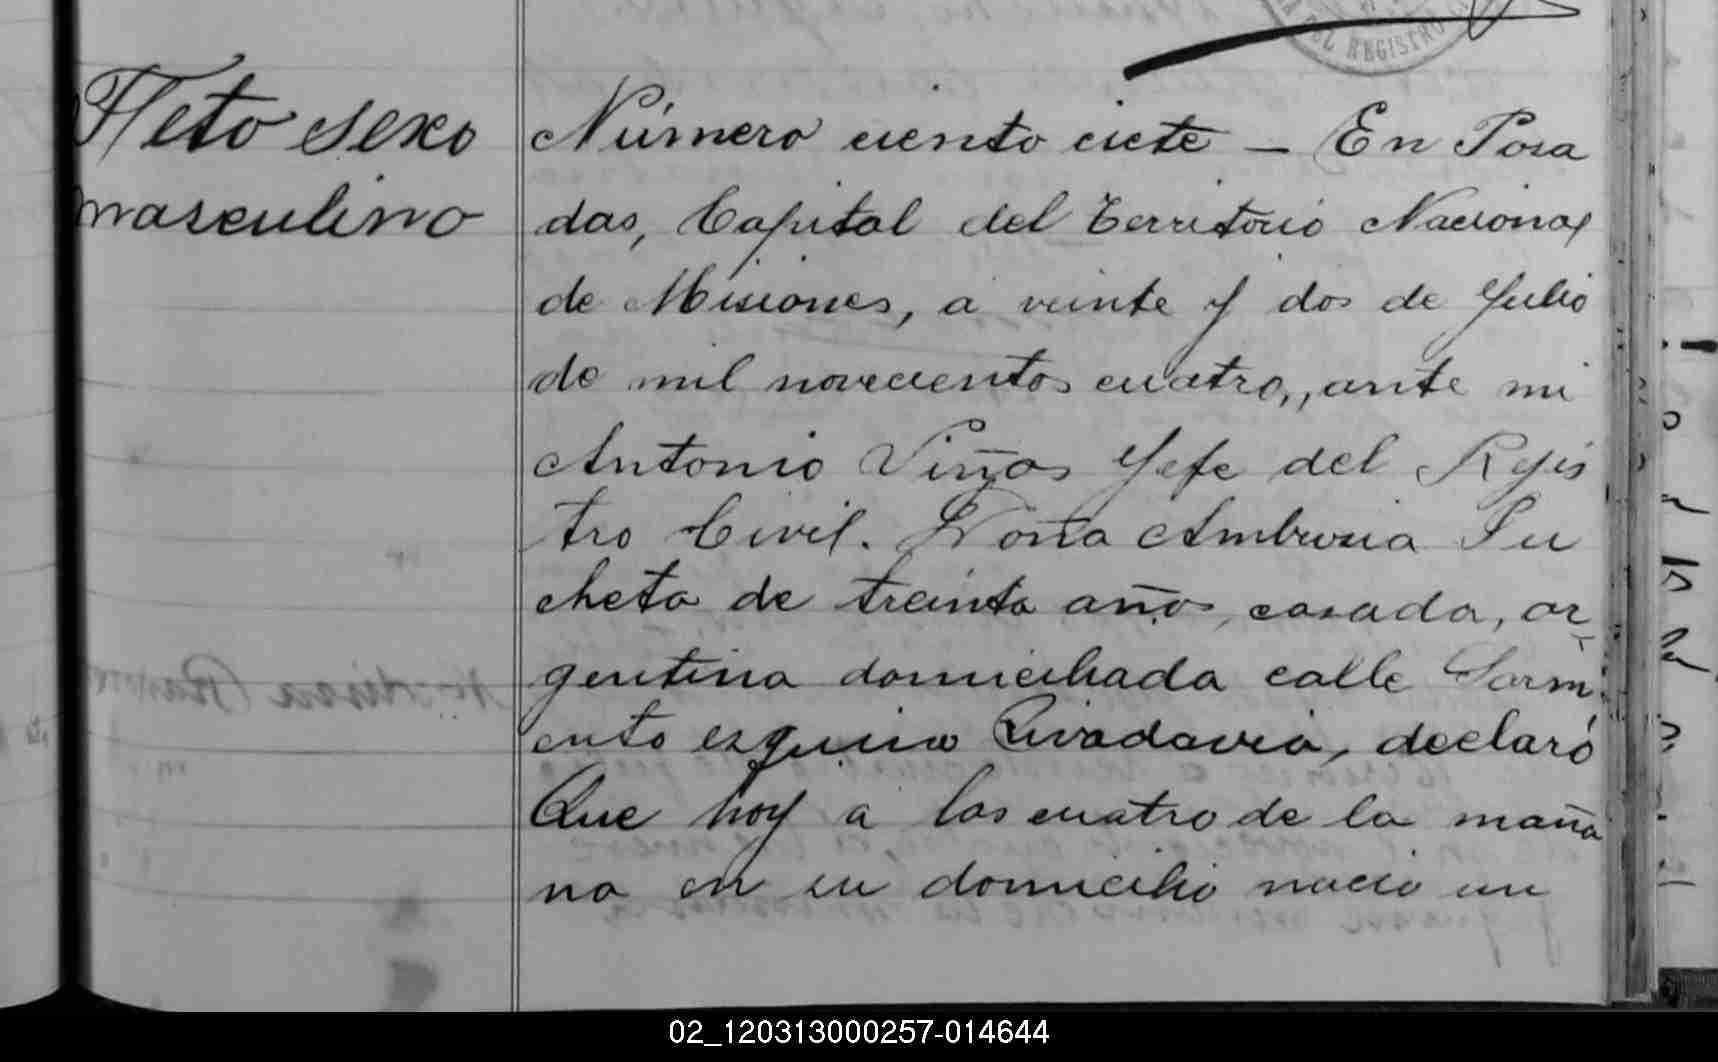 EL REGISTRO
Feto sexo
masculino
Número ciento ciete — En Posa
das, Capital del Territorio Nacional
de Misiones, a veinte y dos de Julio
de mil novecientos cuatro,, ante mi
Antonio Viñas Jefe del Regis
tro Civil. Doña Ambrosia Pu
cheta de treinta años, casada, ar
gentina domiciliada calle Sarmi
ento esquina Rivadavia, declaró
Que hoy a las cuatro de la maña
na en su domicilio nació un
02_120313000257-014644